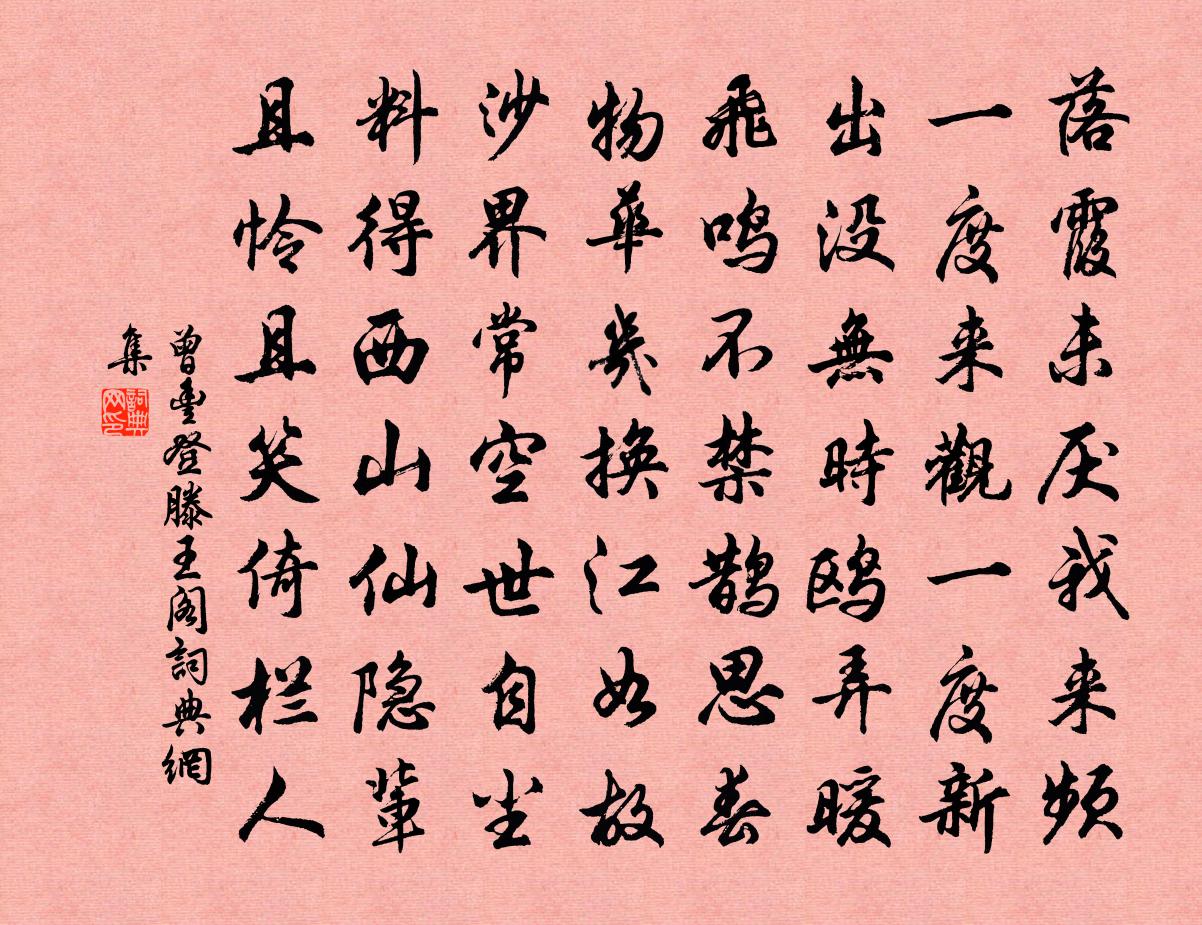 落霞未厌我来频
一度来觀一度新
出没無時鸥弄暖
飛鳴不禁鹊思春
物華幾换江如故
沙界常空世自尘
料得西山仙隐輩
且怜且笑倚栏人
曾豊登滕王阁詞典網
集
詞典网印